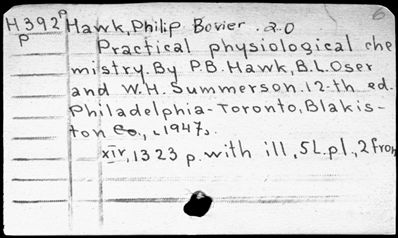 H392p Hawk, Philip Bovier. 20
p Practical physiological che
mistry. By P.B. Hawk, B.L. Oser
and W.H. Summerson. 12-th ed.
Philadelphia-Toronto, Blakis-
ton Co., c1947.
XIV, 1323 p. with ill, 5L.pl, 2 fron